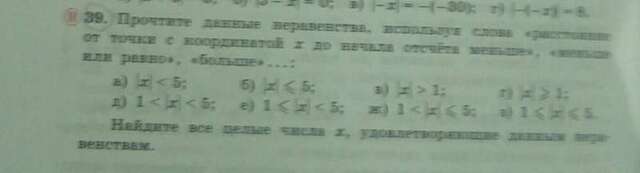 б) |3 - x| = 0; в) |-x| = -(-39); г) |-(-x)| = 8.
39. Прочтите данные неравенства, используя слова «расстояние
от точки с координатой x до начала отсчёта меньше», «меньше
или равно», «больше»...:
а) |x| < 5; б) |x| ⩽ 5; в) |x| > 1; г) |x| ⩾ 1;
д) 1 < |x| < 5; е) 1 ⩽ |x| < 5; ж) 1 < |x| ⩽ 5; з) 1 ⩽ |x| ⩽ 5.
Найдите все целые числа x, удовлетворяющие данным нера-
венствам.